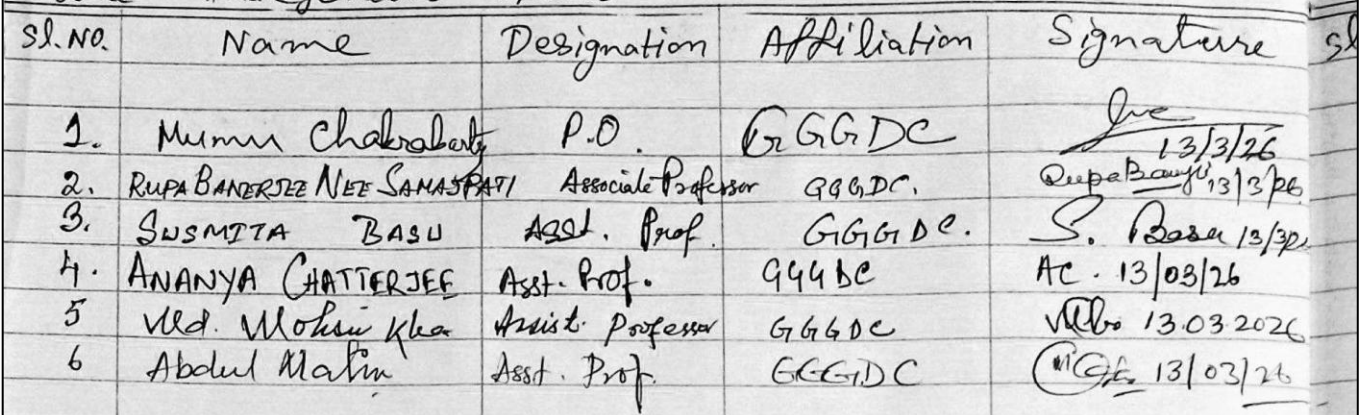 Sl. No. Name Designation Affiliation Signature Sl
1. Mumu Chakrabarty P.O. GGGDC 13/3/26
2. RUPA BANERJEE NEE SAMAJPATI Associate Professor GGGDC. Rupa Banerji 13/3/26
3. SUSMITA BASU Asst. Prof. GGGDC. S. Basu 13/3/2
4. ANANYA CHATTERJEE Asst. Prof. GGGDC AC. 13/03/26
5 Md. Mohsin Khan Assist. Professor GGGDC 13.03.2026
6 Abdul Matin Asst. Prof. GGGDC 13/03/26